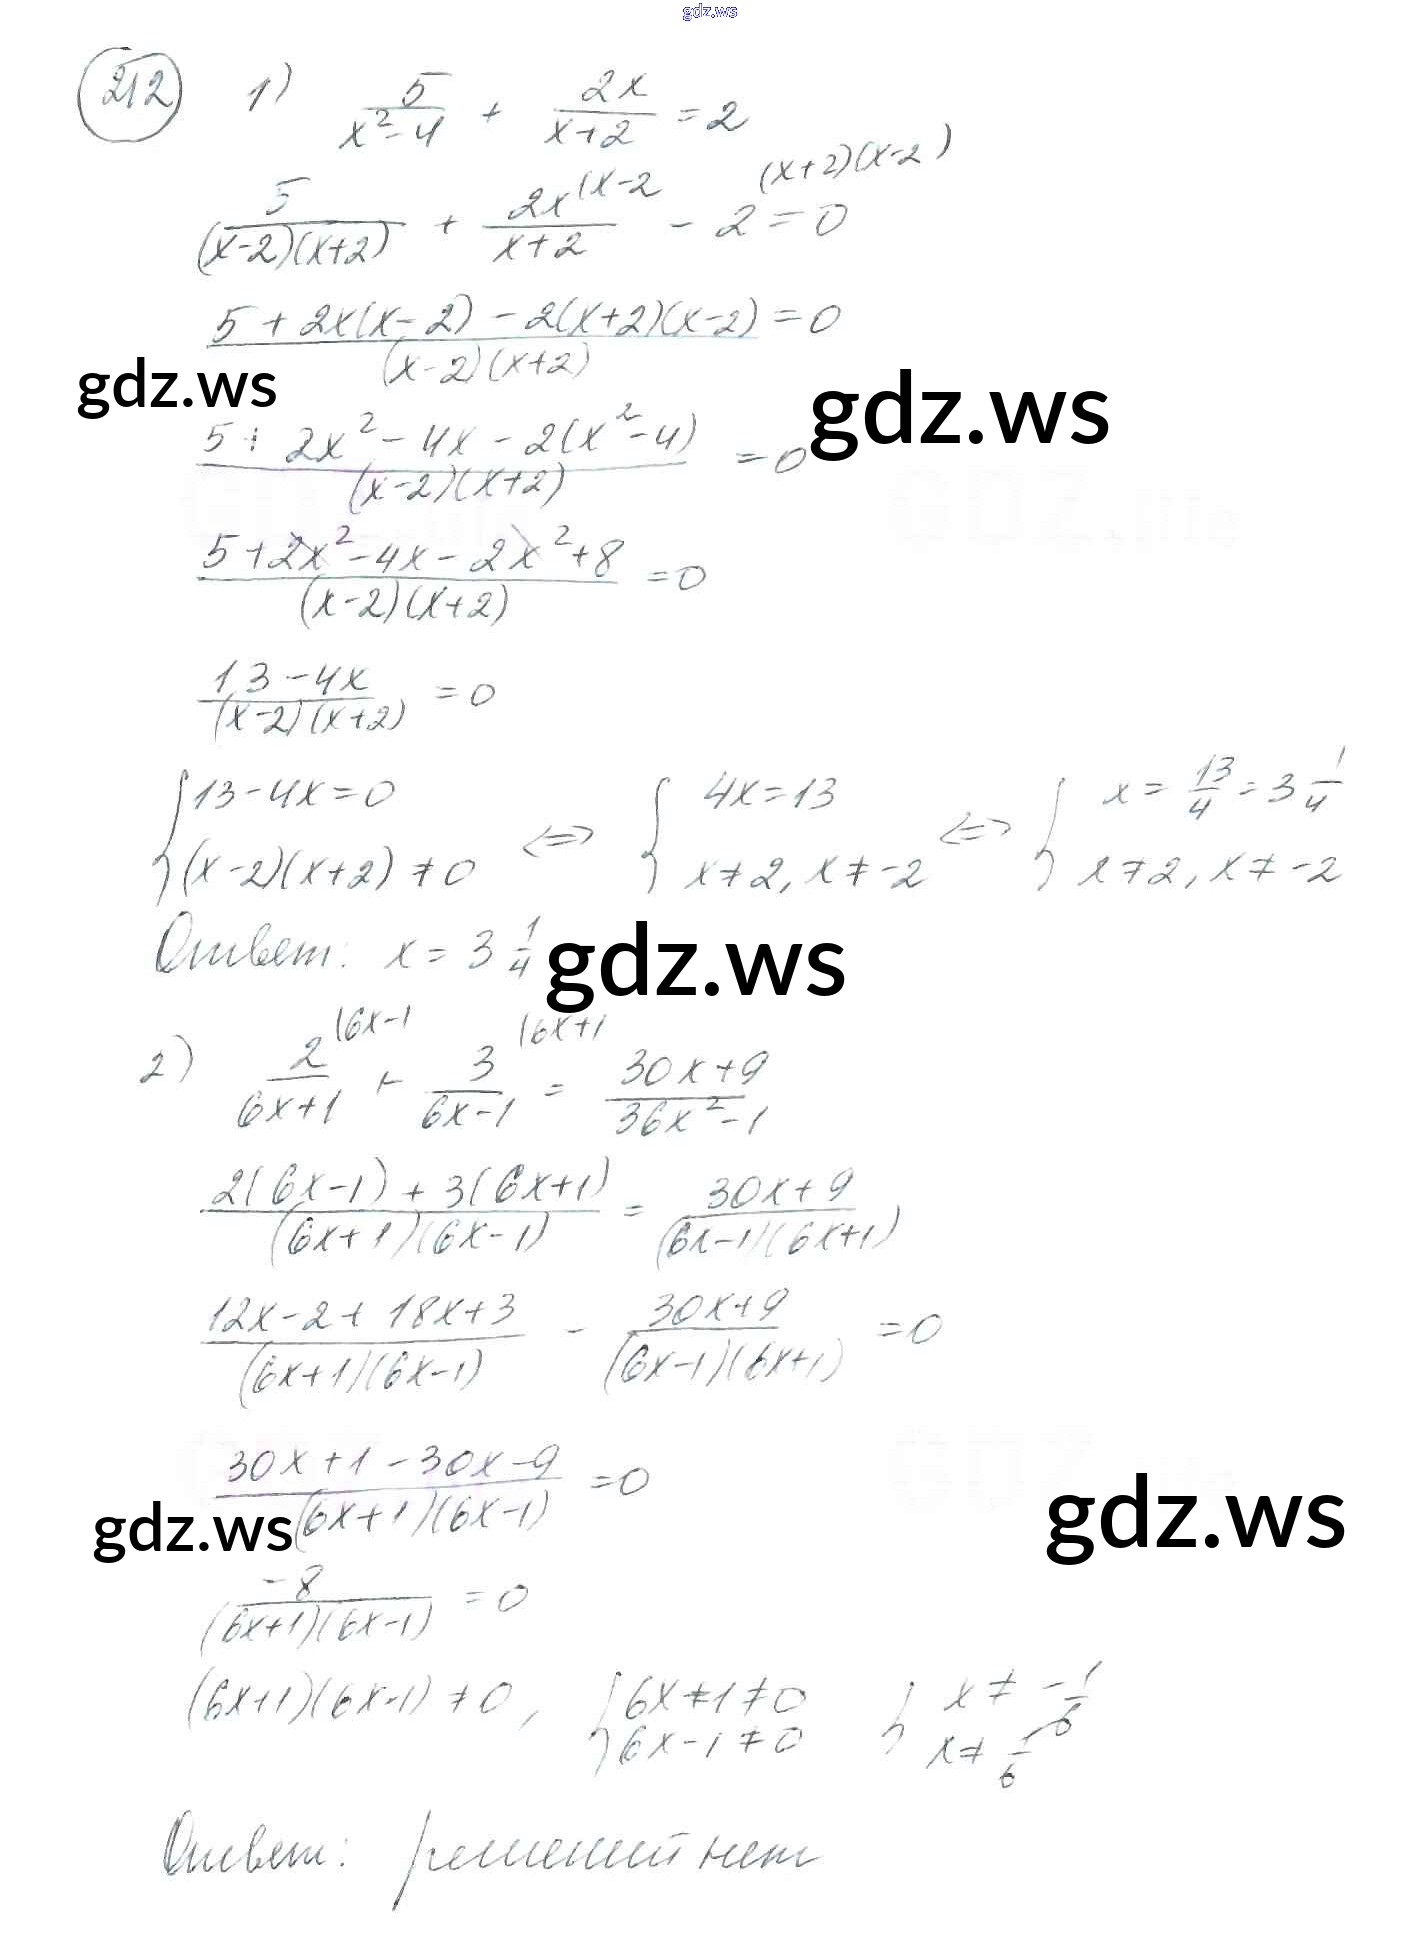 gdz.ws
212 1) 5/(x²-4) + 2x/(x+2) = 2
5/((x-2)(x+2)) + 2x^(x-2/(x+2) - 2^(x+2)(x-2) = 0
(5 + 2x(x-2) - 2(x+2)(x-2))/((x-2)(x+2)) = 0
gdz.ws
gdz.ws
(5 + 2x² - 4x - 2(x²-4))/((x-2)(x+2)) = 0
GDZ.life GDZ.life
(5 + 2x² - 4x - 2x² + 8)/((x-2)(x+2)) = 0
(13 - 4x)/((x-2)(x+2)) = 0
{ 13 - 4x = 0 ⇔ { 4x = 13 ⇔ { x = 13/4 = 3 1/4
(x-2)(x+2) ≠ 0 x ≠ 2, x ≠ -2 x ≠ 2, x ≠ -2
Ответ: x = 3 1/4
gdz.ws
2) 2^(6x-1/(6x+1) + 3^(6x+1/(6x-1) = (30x+9)/(36x²-1)
(2(6x-1) + 3(6x+1))/((6x+1)(6x-1)) = (30x+9)/((6x-1)(6x+1))
(12x-2+18x+3)/((6x+1)(6x-1)) - (30x+9)/((6x-1)(6x+1)) = 0
(30x+1-30x-9)/((6x+1)(6x-1)) = 0
gdz.ws
gdz.ws
-8/((6x+1)(6x-1)) = 0
(6x+1)(6x-1) ≠ 0, { 6x+1 ≠ 0 { x ≠ -1/6
6x-1 ≠ 0 x ≠ 1/6
Ответ: решений нет